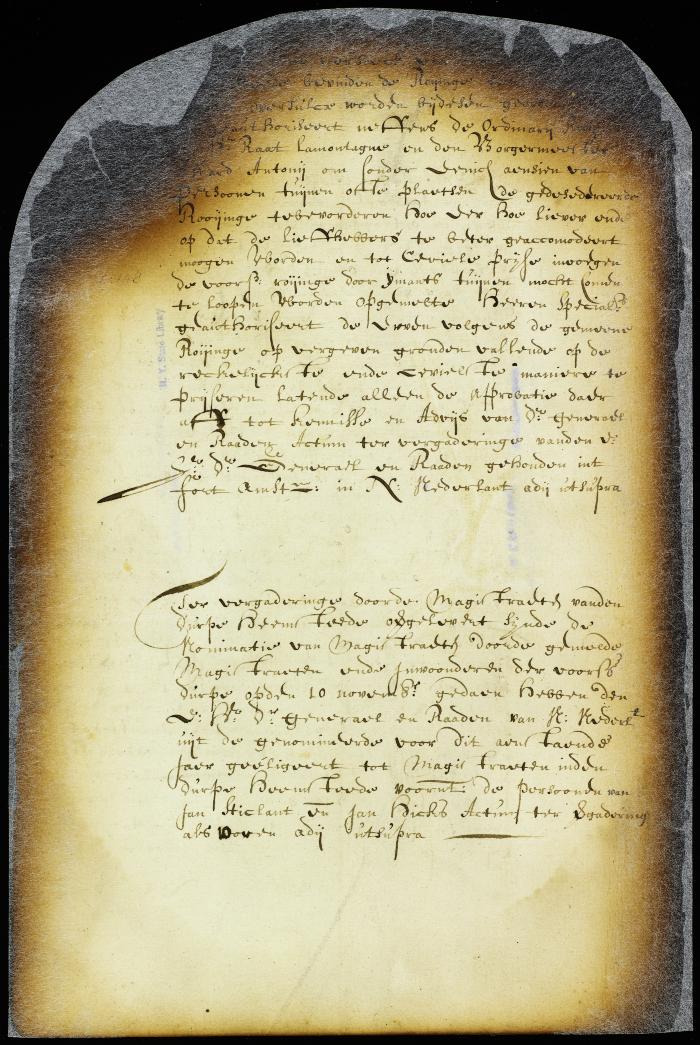 bevinden de Royinge
oversulcx worden bijdesen
authoriseert neffens de Ordinarij
Raat Lamontagne en den Borgermeester
Antonij om sonder aensien van
persoonen tuijnen ofte plaetsen de gedesedereerde
Rooijinge tebevorderen hoe eer hoe liever ende
op dat de liefhebbers te beter geaccomodeert
moogen worden en tot Civiele prijse
de voors: roijinge door ymants tuijnen mocht comen
te loopen worden opgemelte Heeren speciael
geauthoriseert de erven volgens de gemeene
Roijinge op vergeven gronden vallende op de
reckelijckste ende Cevielste maniere te
priseren Latende alleen de Approbatie daer
aff tot kennisse en Advijs van Dr Generael
en Raaden Actum ter vergaderinge vanden E:
Hr Dr Generael en Raaden gehouden int
fort Amst: in N: Nederlant adij utsupra
Ter vergaderinge doorde Magistraeten vanden
durpe Heemsteede opgelevert sijnde de
Nominatie van Magistraeten doorde gemelde
Magistraeten ende Inwoonderen der voors
durpe opden 10 novemb: gedaen hebben den
E: Hr Dr Generael en Raaden van N: Nederlt
uijt de genomineerde voor dit aenstaende
Jaer geeligeert tot Magistraeten inden
durpe Heemsteede voornt: de persoonen van
Jan Sticlant en Jan Hicks Actum ter vgadering
als voren adij utsupra
N. Y. State Library